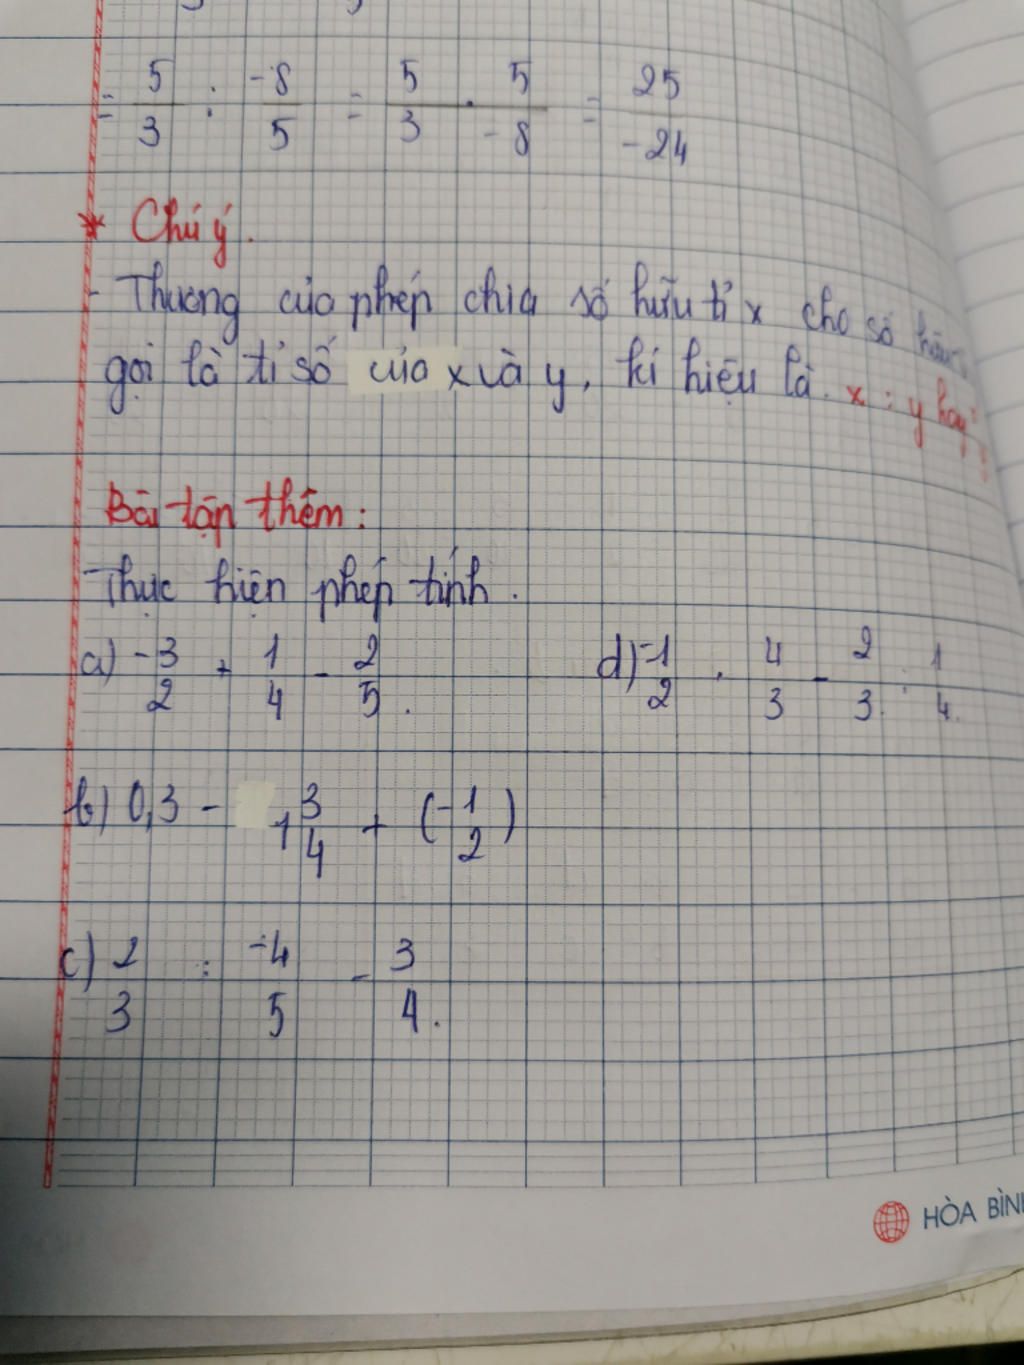 = 5/3 : -8/5 = 5/3 . 5/-8 = 25/-24
* Chú ý.
- Thương của phép chia số hữu tỉ x cho số hữu
gọi là tỉ số của x và y, kí hiệu là x : y hay
Bài tập thêm:
Thực hiện phép tính.
a) -3/2 + 1/4 - 2/5.
d) -1/2 . 4/3 - 2/3 : 1/4.
b) 0,3 - 1 3/4 + (-1/2)
c) 2/3 : -4/5 - 3/4.
HÒA BÌNH